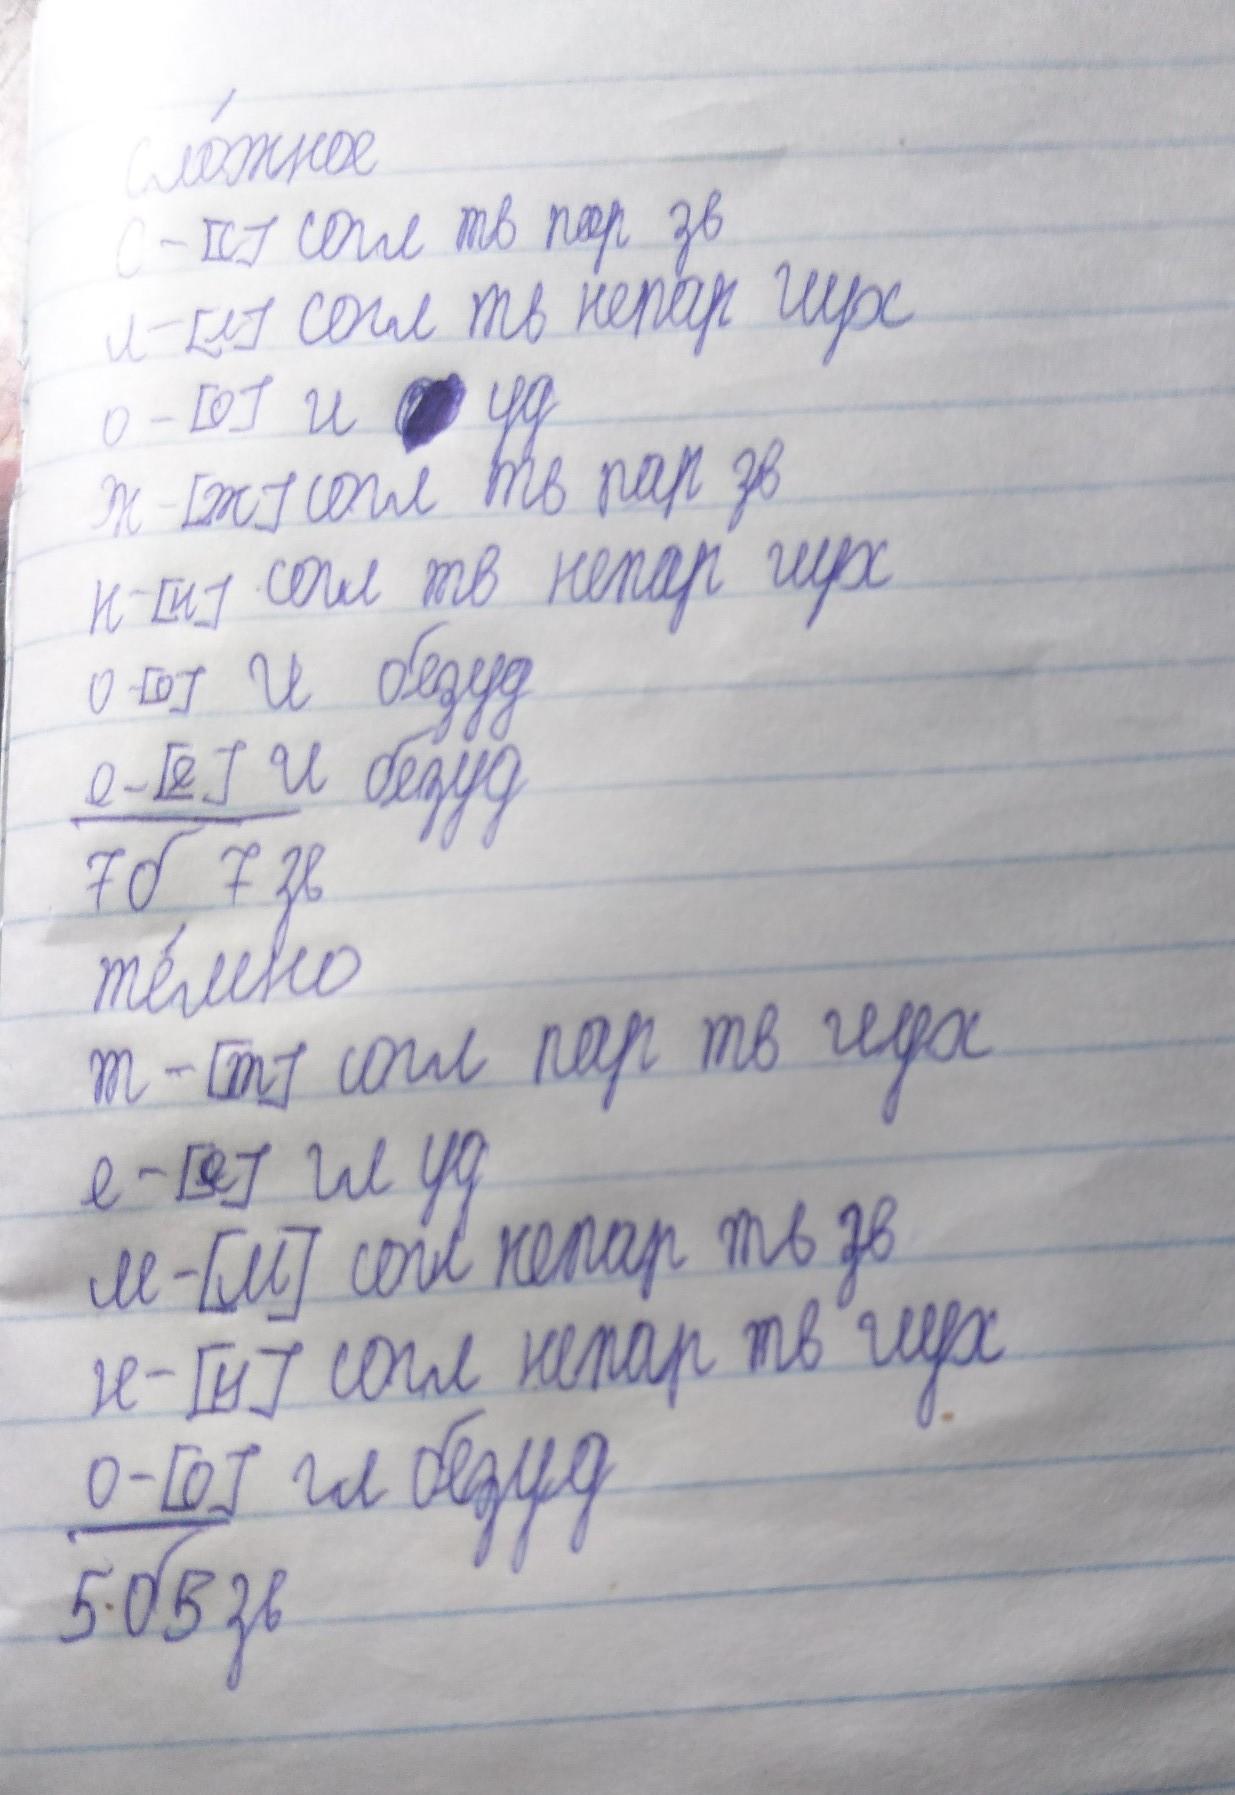 сло́жное
с - [с] согл тв пар зв
л - [л] согл тв непар глух
о - [о] и уд
ж - [ж] согл тв пар зв
н - [н] согл тв непар глух
о - [о] и безуд
е - [е] и безуд
7 б 7 зв
те́мно
т - [т] согл пар тв глух
е - [е] гл уд
м - [м] согл непар тв зв
н - [н] согл непар тв глух
о - [о] гл безуд
5 б 5 зв